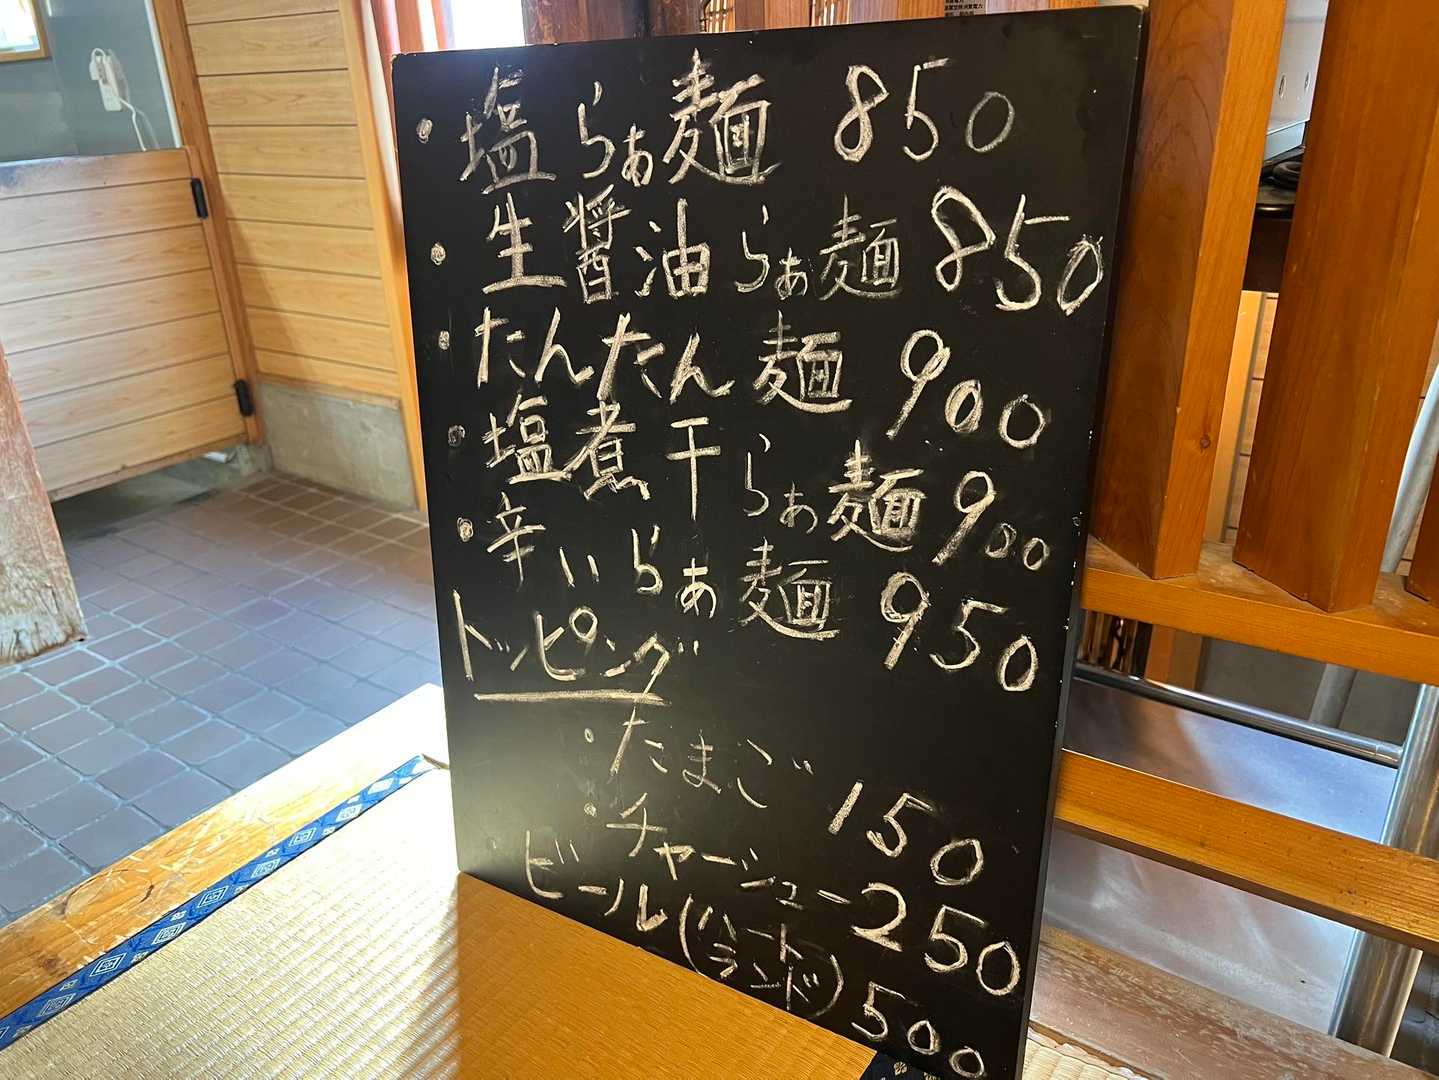 ・塩らぁ麺 850
・生醤油らぁ麺 850
・たんたん麺 900
・塩煮干らぁ麺 900
・辛いらぁ麺 950
トッピング
・たまご 150
・チャーシュー 250
ビール(ハートランド) 500